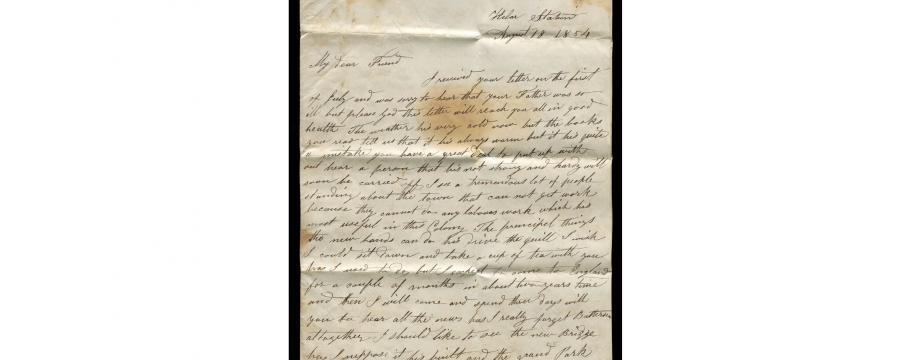 Station
August 18 1854
My dear Friend
I received your letter on the first
of July and was sorry to hear that your Father was so
ill but please God this letter will reach you all in good
health The weather his very cold now but the books
you read tell us that it his always warm but it his quite
a mistake you have a great deal to put up with
out hear a person that his not strong and hardy will
soon be carried off I see a tremendous lot of people
standing about the town that can not get work
because they cannot do any work which his
most useful in this Colony The principel things
the new hands can do his drive the quill I wish
I could sit down and take a cup of tea with you
has I used to do but I expect to come to England
for a couple of months in about two years time
and then I will come and spend three days with
you to hear all the news has I really forget Battersea
altogether I should like to see the new Brizze
has I suppose it his built and the grand Park